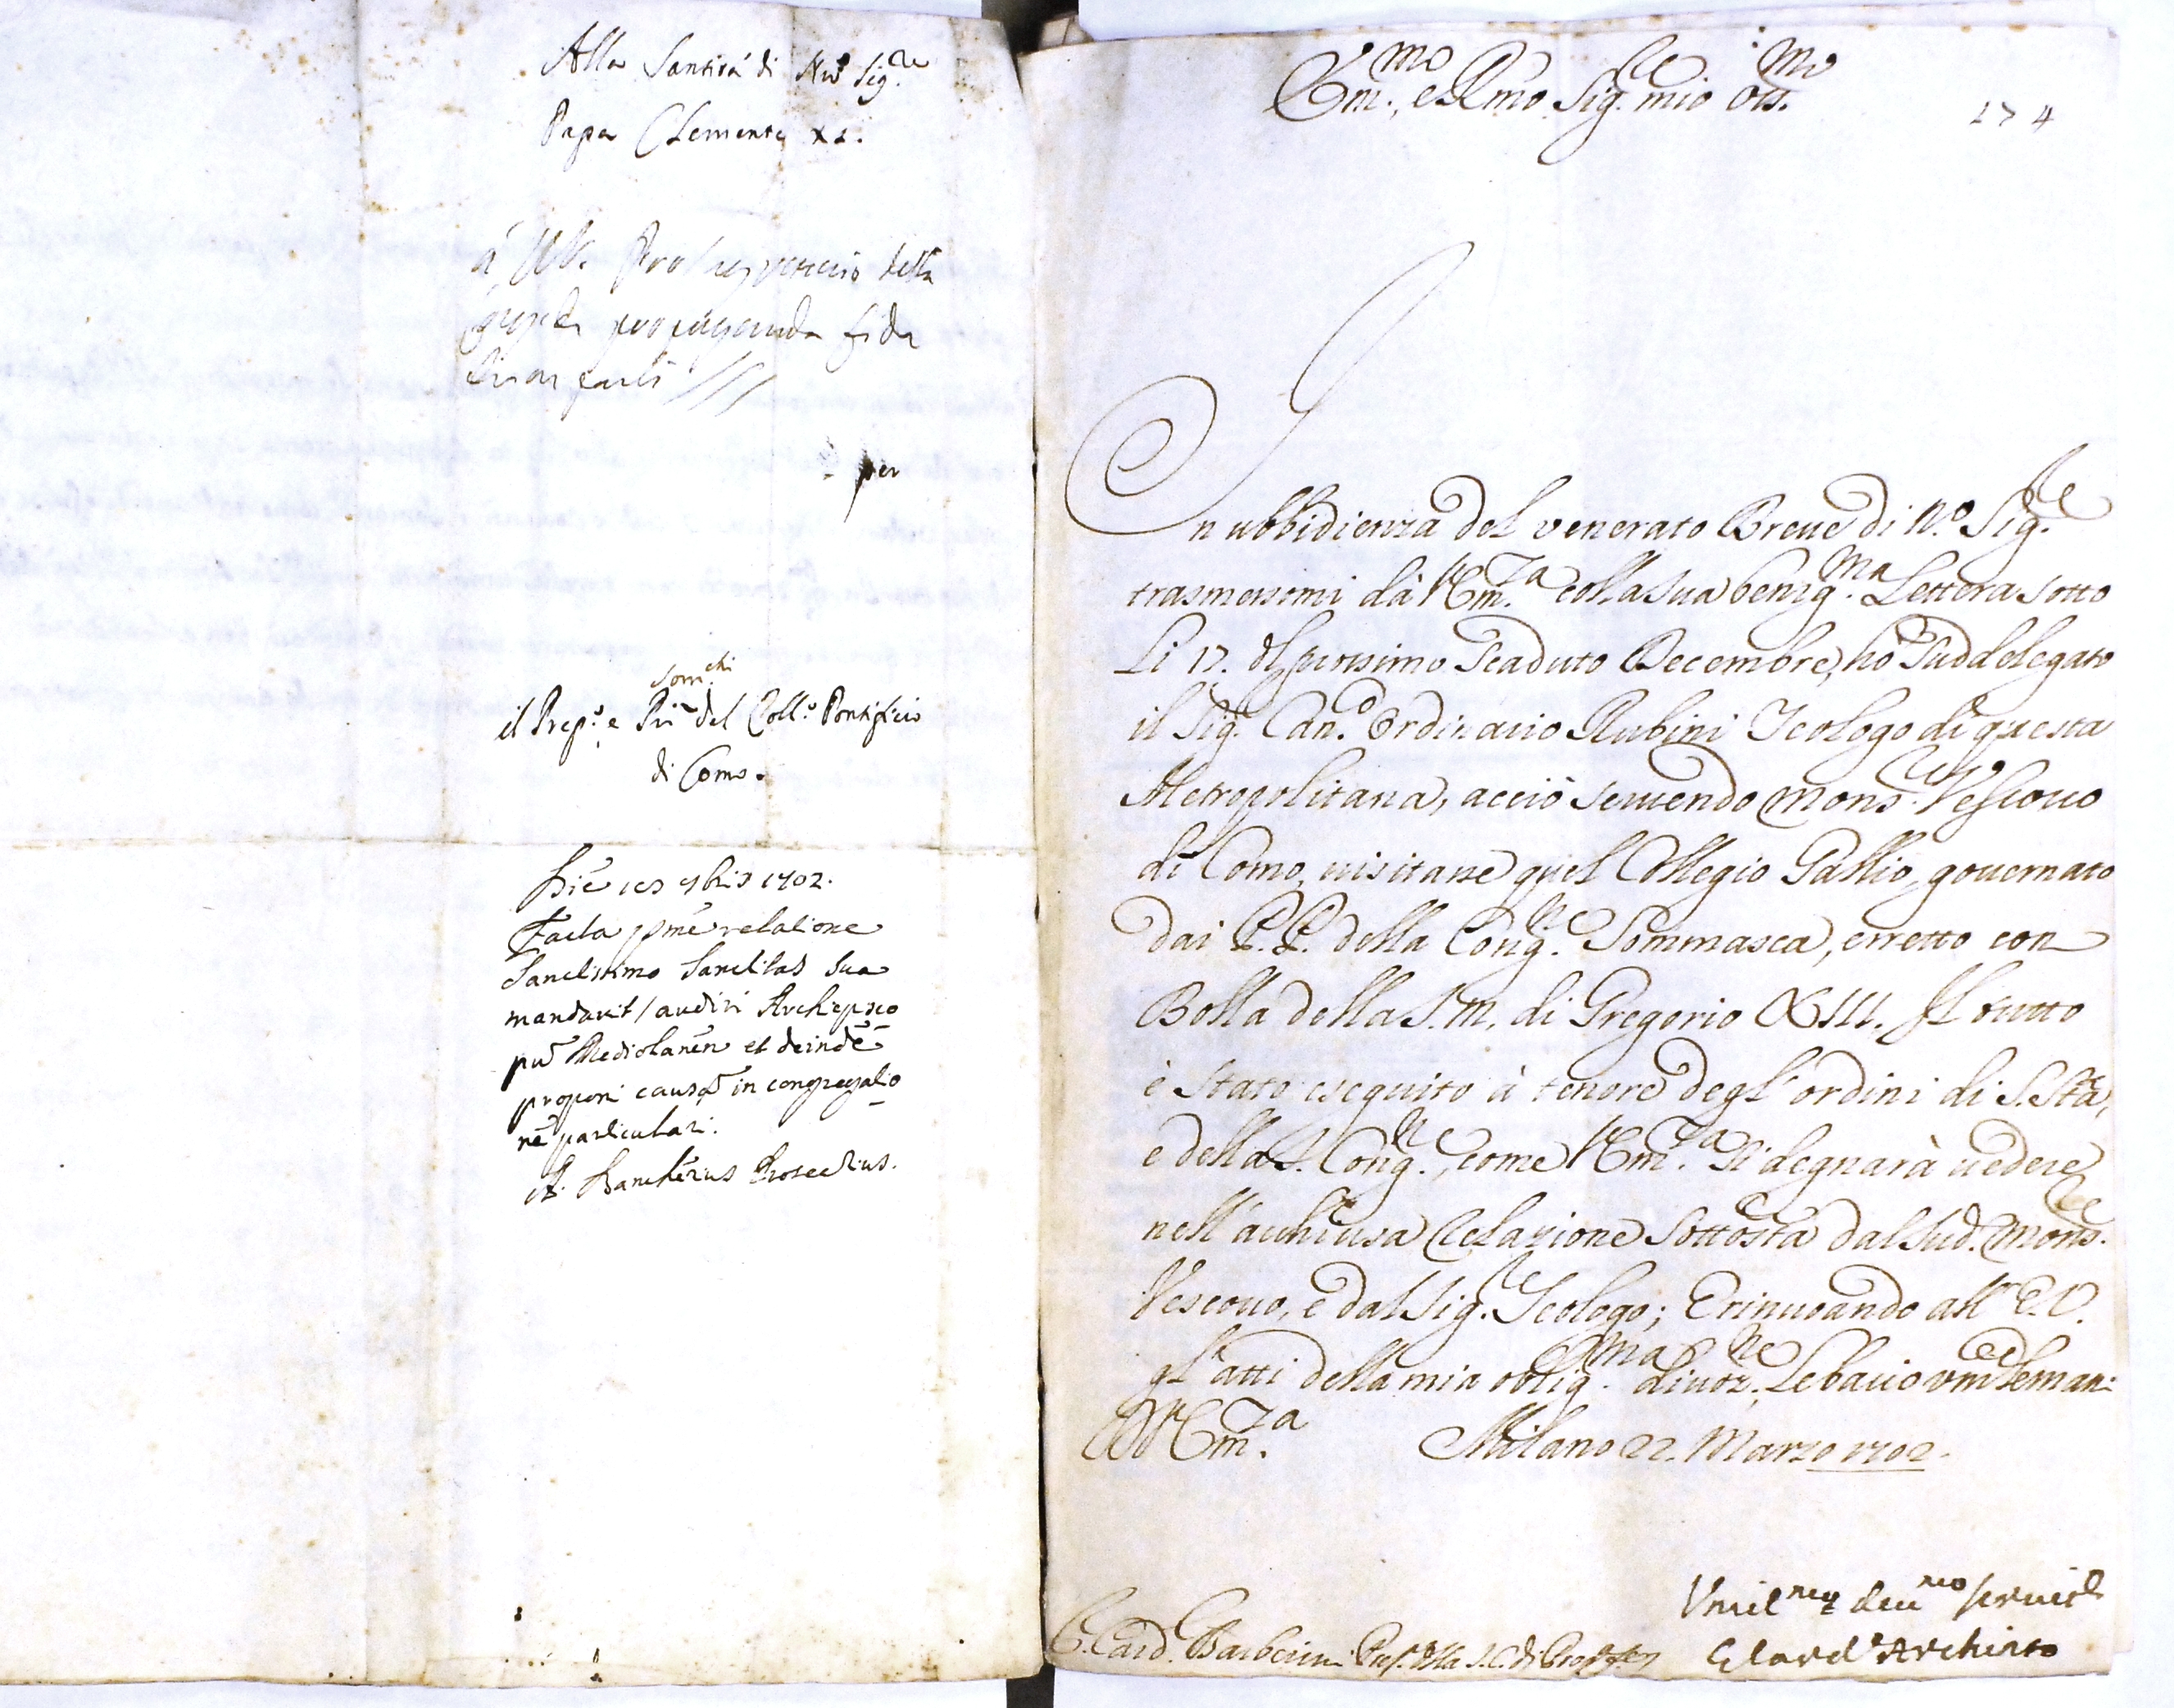 Alla Santità di Nrõ Sig.re
Papa Clemente XI.
à Mr. Pro Segretario della
propaganda fide
per
Som.chi
il Prep.o e Pri del Coll.o Pontificio
di Como.
Die 9bris 1702.
Facta p me relatione
Sanctissimo Sanctitas sua
mandavit / audiri Archiepisco
pũ Mediolanẽn et deindè
proponi causã in congregatio
nẽ particulari.
A. Prosecrius.
Em.mo e Rmo Sig.re mio Oss.mo
174
In ubbidienza del venerato Breue di N.o Sig.re
trasmessomi dà V Em.za colla sua benig.ma Lettera sotto
li 17. del prossimo scaduto Decembre, hò suddelegato
il Sig.r Can.o Ordinario Rubini Teologo di questa
Metropolitana, acciò seruendo Mons.r Vescouo
di Como, uisitasse quel Collegio Gallio, gouernato
dai P.P. della Cong.ne Sommasca, erretto con
Bolla della S.M. di Gregorio XIII. Il tutto
è stato eseguito à tenore degl'ordini di S. Stà,
e della S. Cong.ne, come V Em.za si degnarà uedere
nell'acchiusa Relazione sottostà dal sud. Mons.re
Vescouo, e dal Sig.re Teologo; E rinuoando all'E.V.
gl'atti della mia oblig.ma diuoz.ne, le bacio vm.te le mani
Di V Em.za Milano 22. Marzo 1702.
Vmil.mo deu.mo seruit.e
Il Card. Archinto
S. Card. Barberini Pref. della S.C. di Prop.